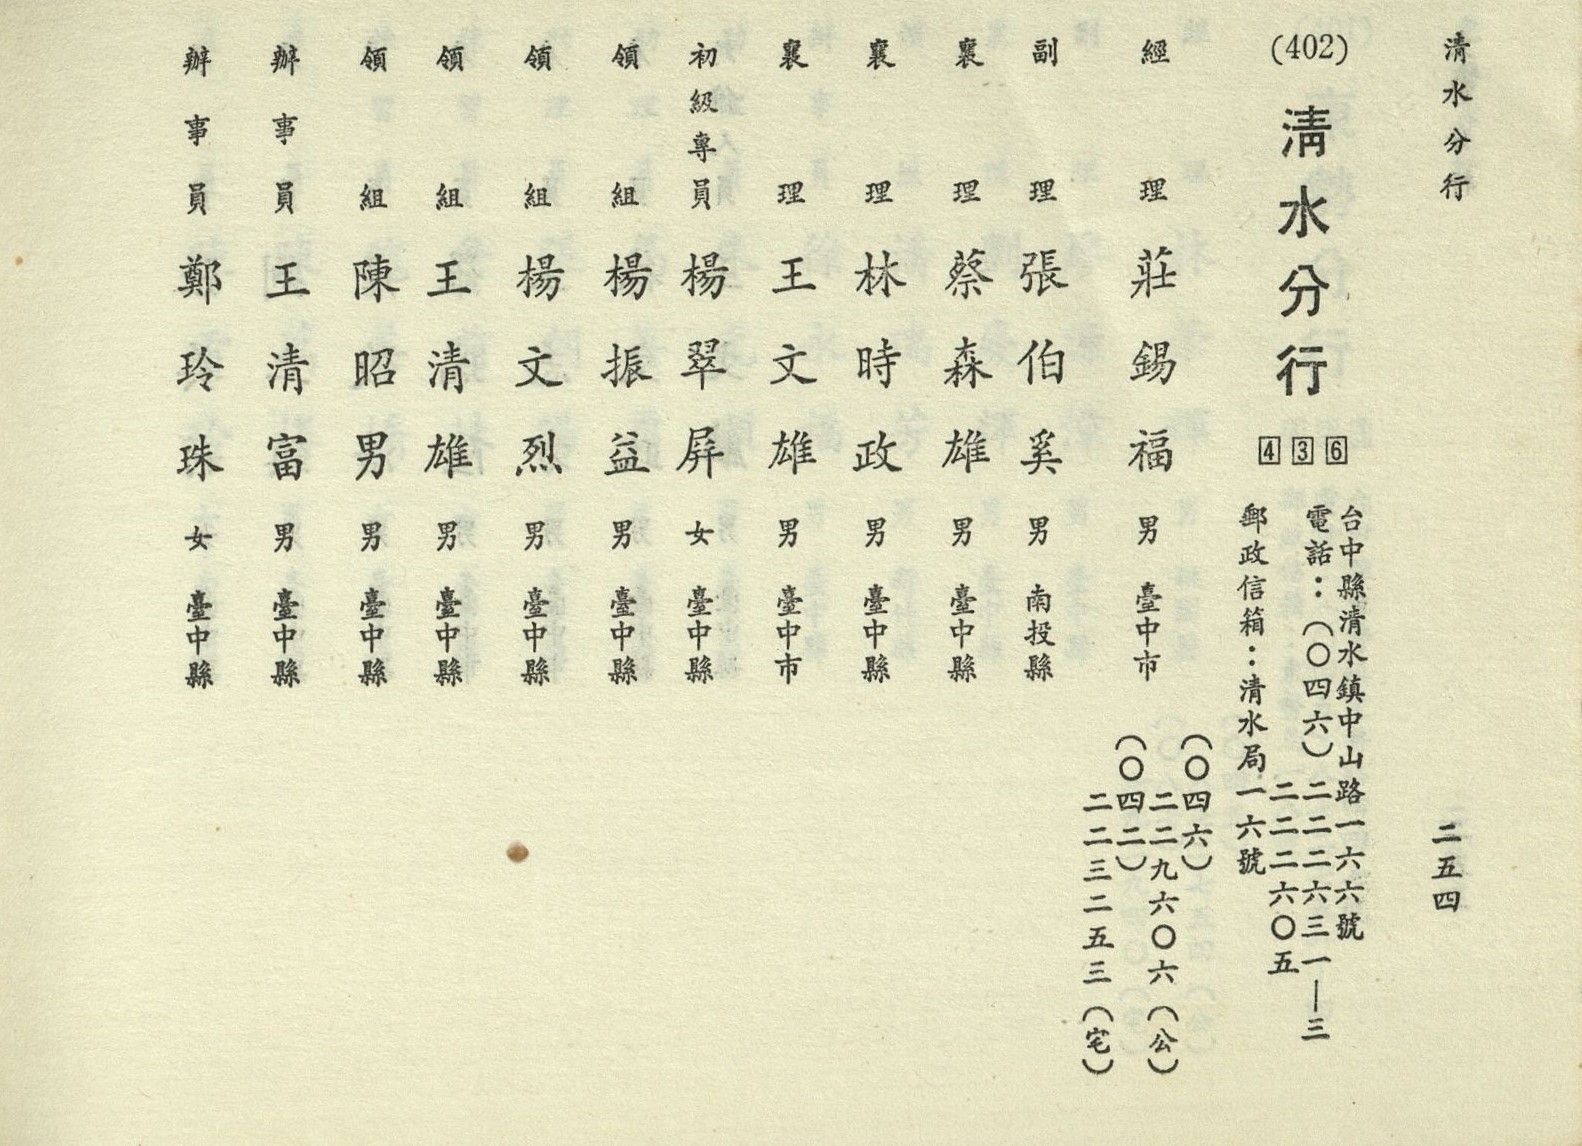 清水分行
二五四
(402)清水分行 436
台中縣清水鎮中山路一六六號
電話：(〇四六)二二二六三一—三
二二二六〇五
郵政信箱：清水局一六號
經理 莊錫福 男 臺中市
(〇四六)
二二九六〇六(公)
(〇四二)
二二三二五三(宅)
副理 張伯奚 男 南投縣
襄理 蔡森雄 男 臺中縣
襄理 林時政 男 臺中縣
襄理 王文雄 男 臺中市
初級專員 楊翠屏 女 臺中縣
領組 楊振益 男 臺中縣
領組 楊文烈 男 臺中縣
領組 王清雄 男 臺中縣
領組 陳昭男 男 臺中縣
辦事員 王清富 男 臺中縣
辦事員 鄭玲珠 女 臺中縣